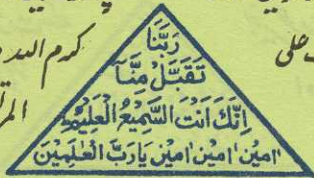 رَبَّنَا
تَقَبَّلْ مِنَّا
اِنَّكَ اَنْتَ السَّمِيْعُ الْعَلِيْمُ
اٰمِيْن اٰمِيْن اٰمِيْن يَا رَبَّ الْعٰلَمِيْنَ